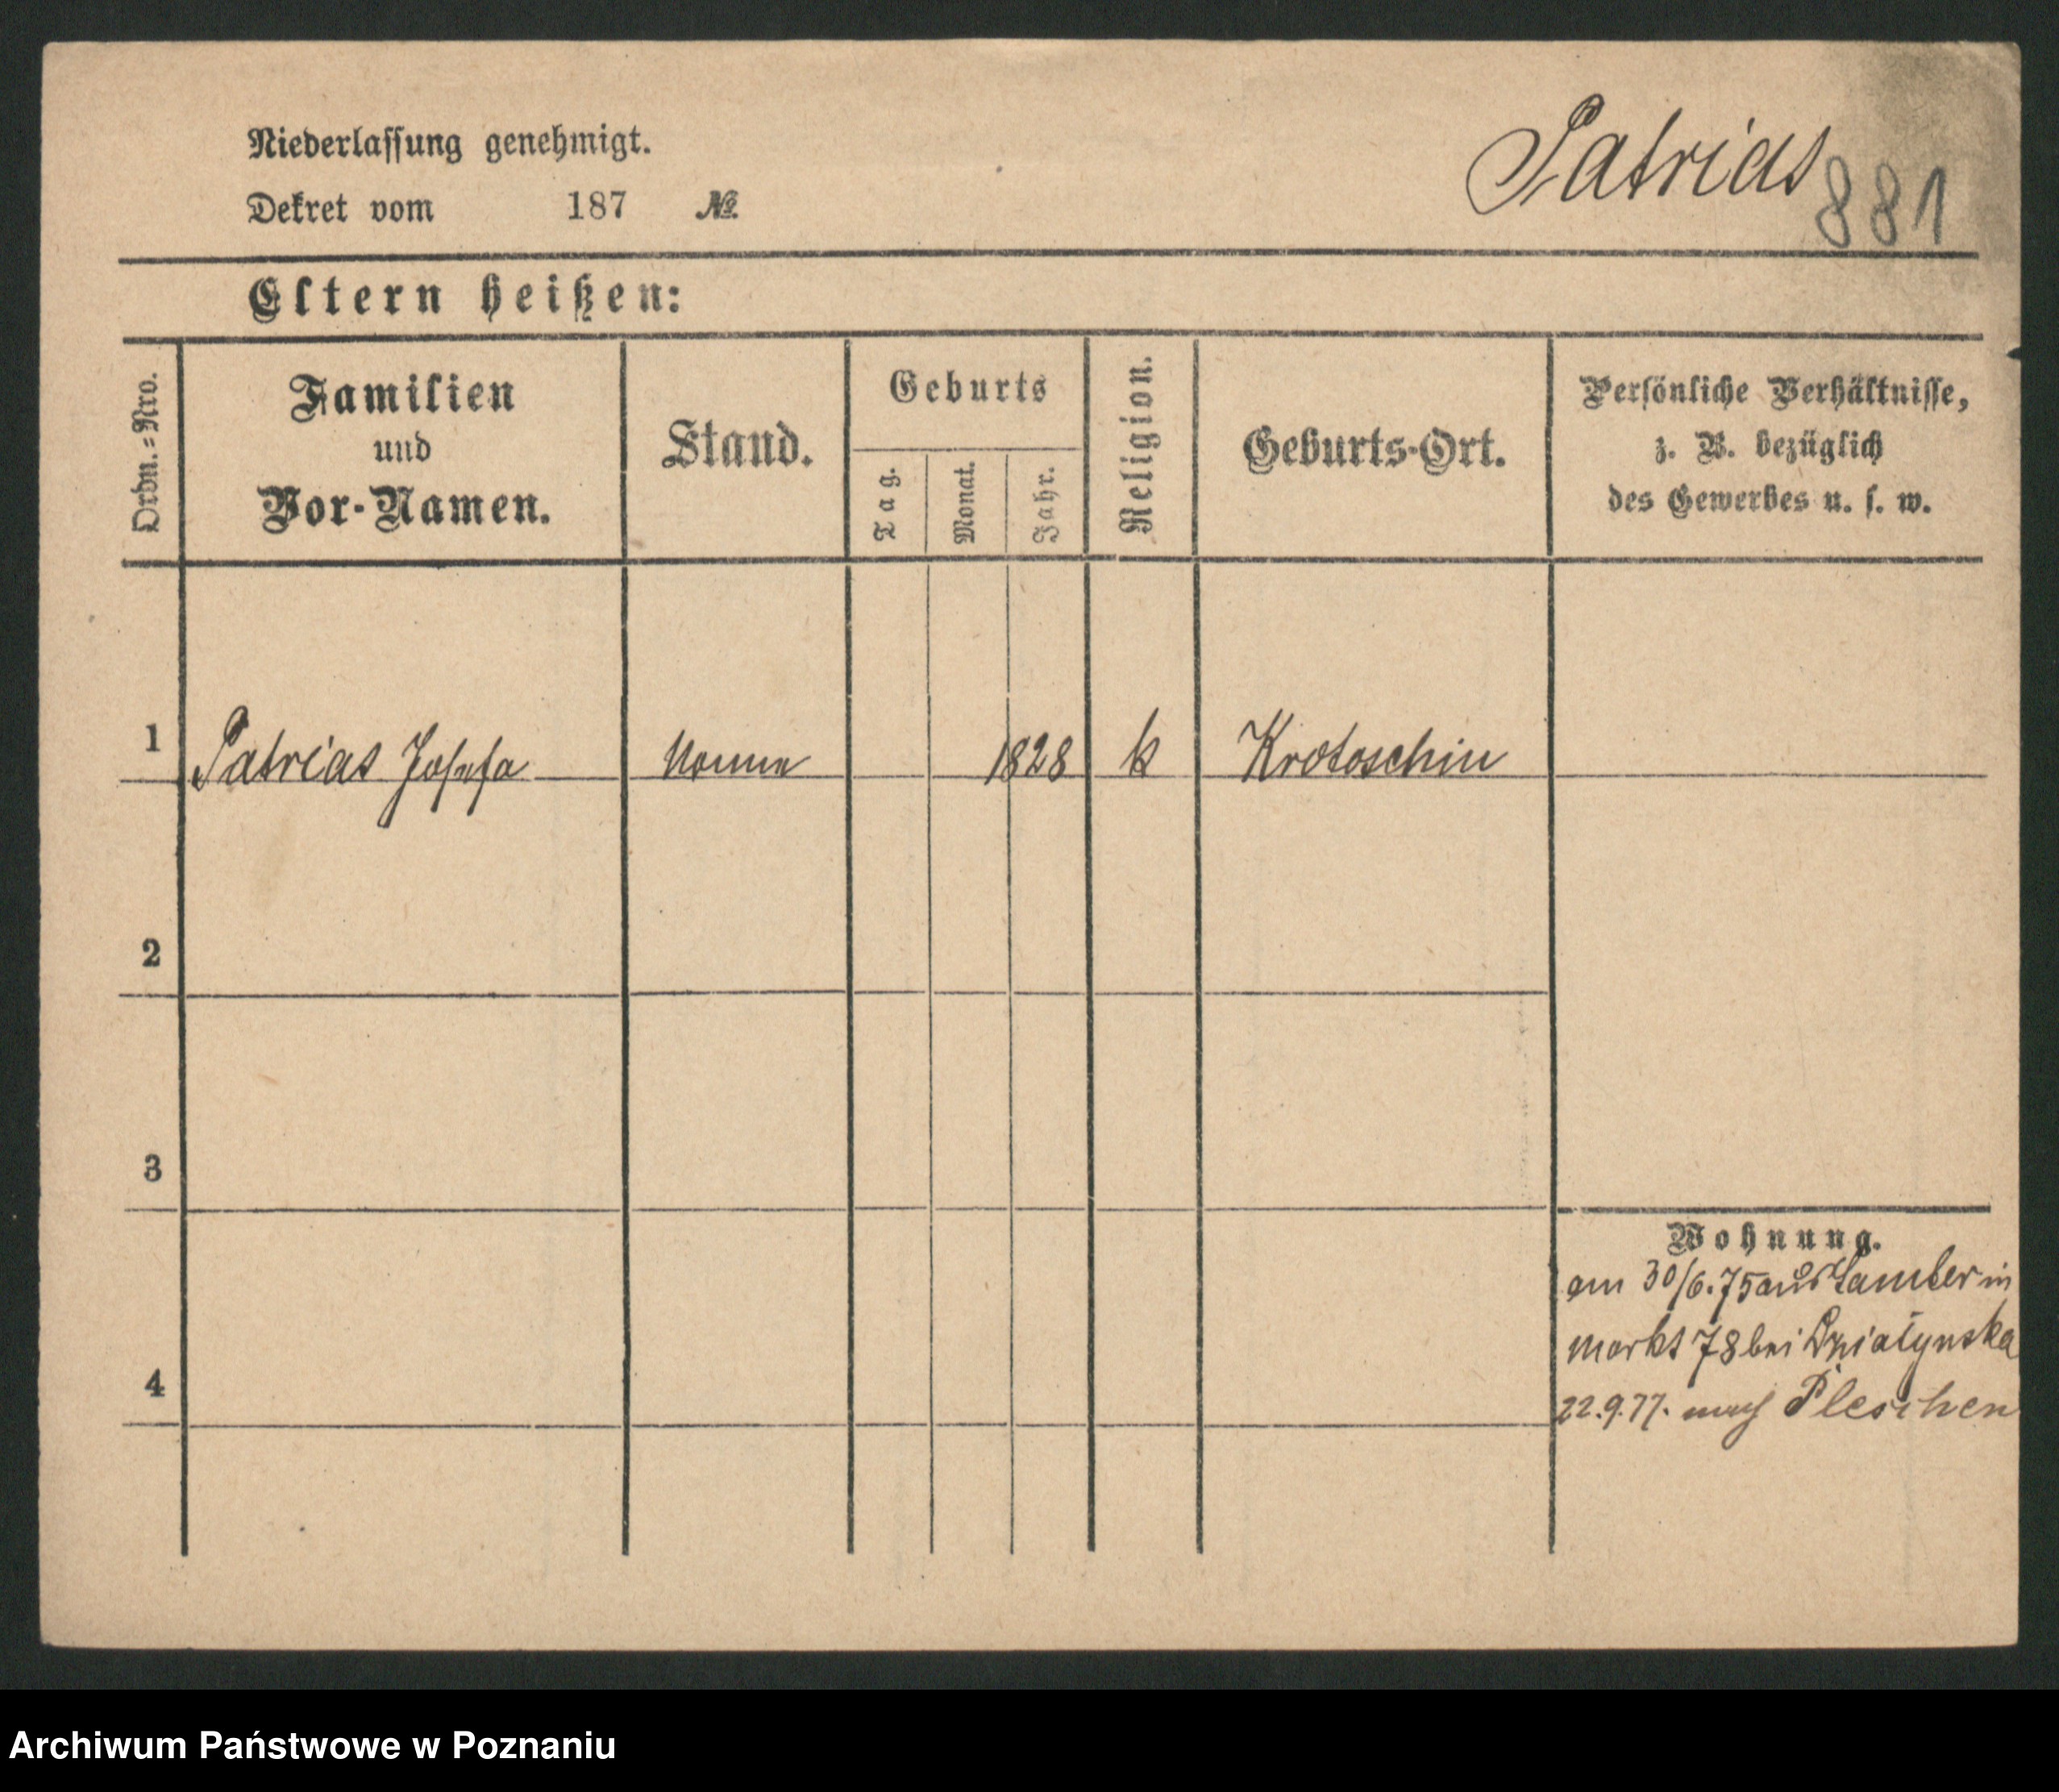 Niederlassung genehmigt.
Dekret vom 187 №
Patrias
881
Eltern heißen:
Ordn.=Nro.
Familien
und
Vor-Namen.
Stand.
Geburts
Tag.
Monat.
Jahr.
Religion.
Geburts-Ort.
Persönliche Verhältnisse,
z. B. bezüglich
des Gewerbes u. s. w.
1 Patrias Josefa Nonne 1828 k Krotoschin
2
3
Wohnung.
am 30/6.75 aus in
Markt 78 bei Działynska
4
22.9.77. nach Pleschen
Archiwum Państwowe w Poznaniu